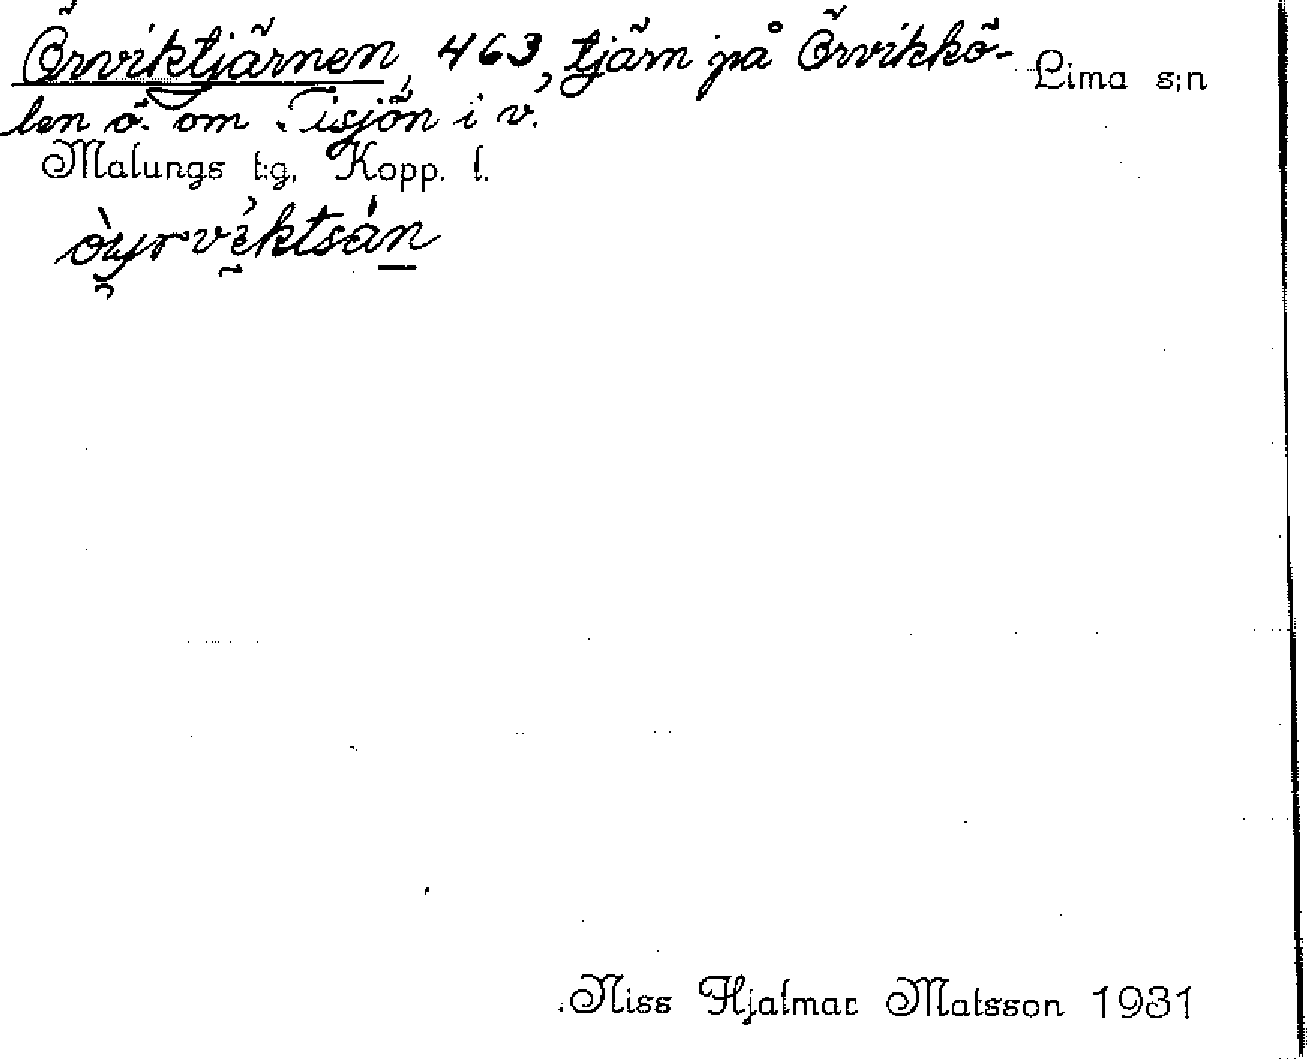 Örviktjärnen, 463, tjärn på Örvikkö-
len ö. om Tisjön i v.
Lima s:n
Malungs t:g. Kopp. l.
Niss Hjalmar Matsson 1931